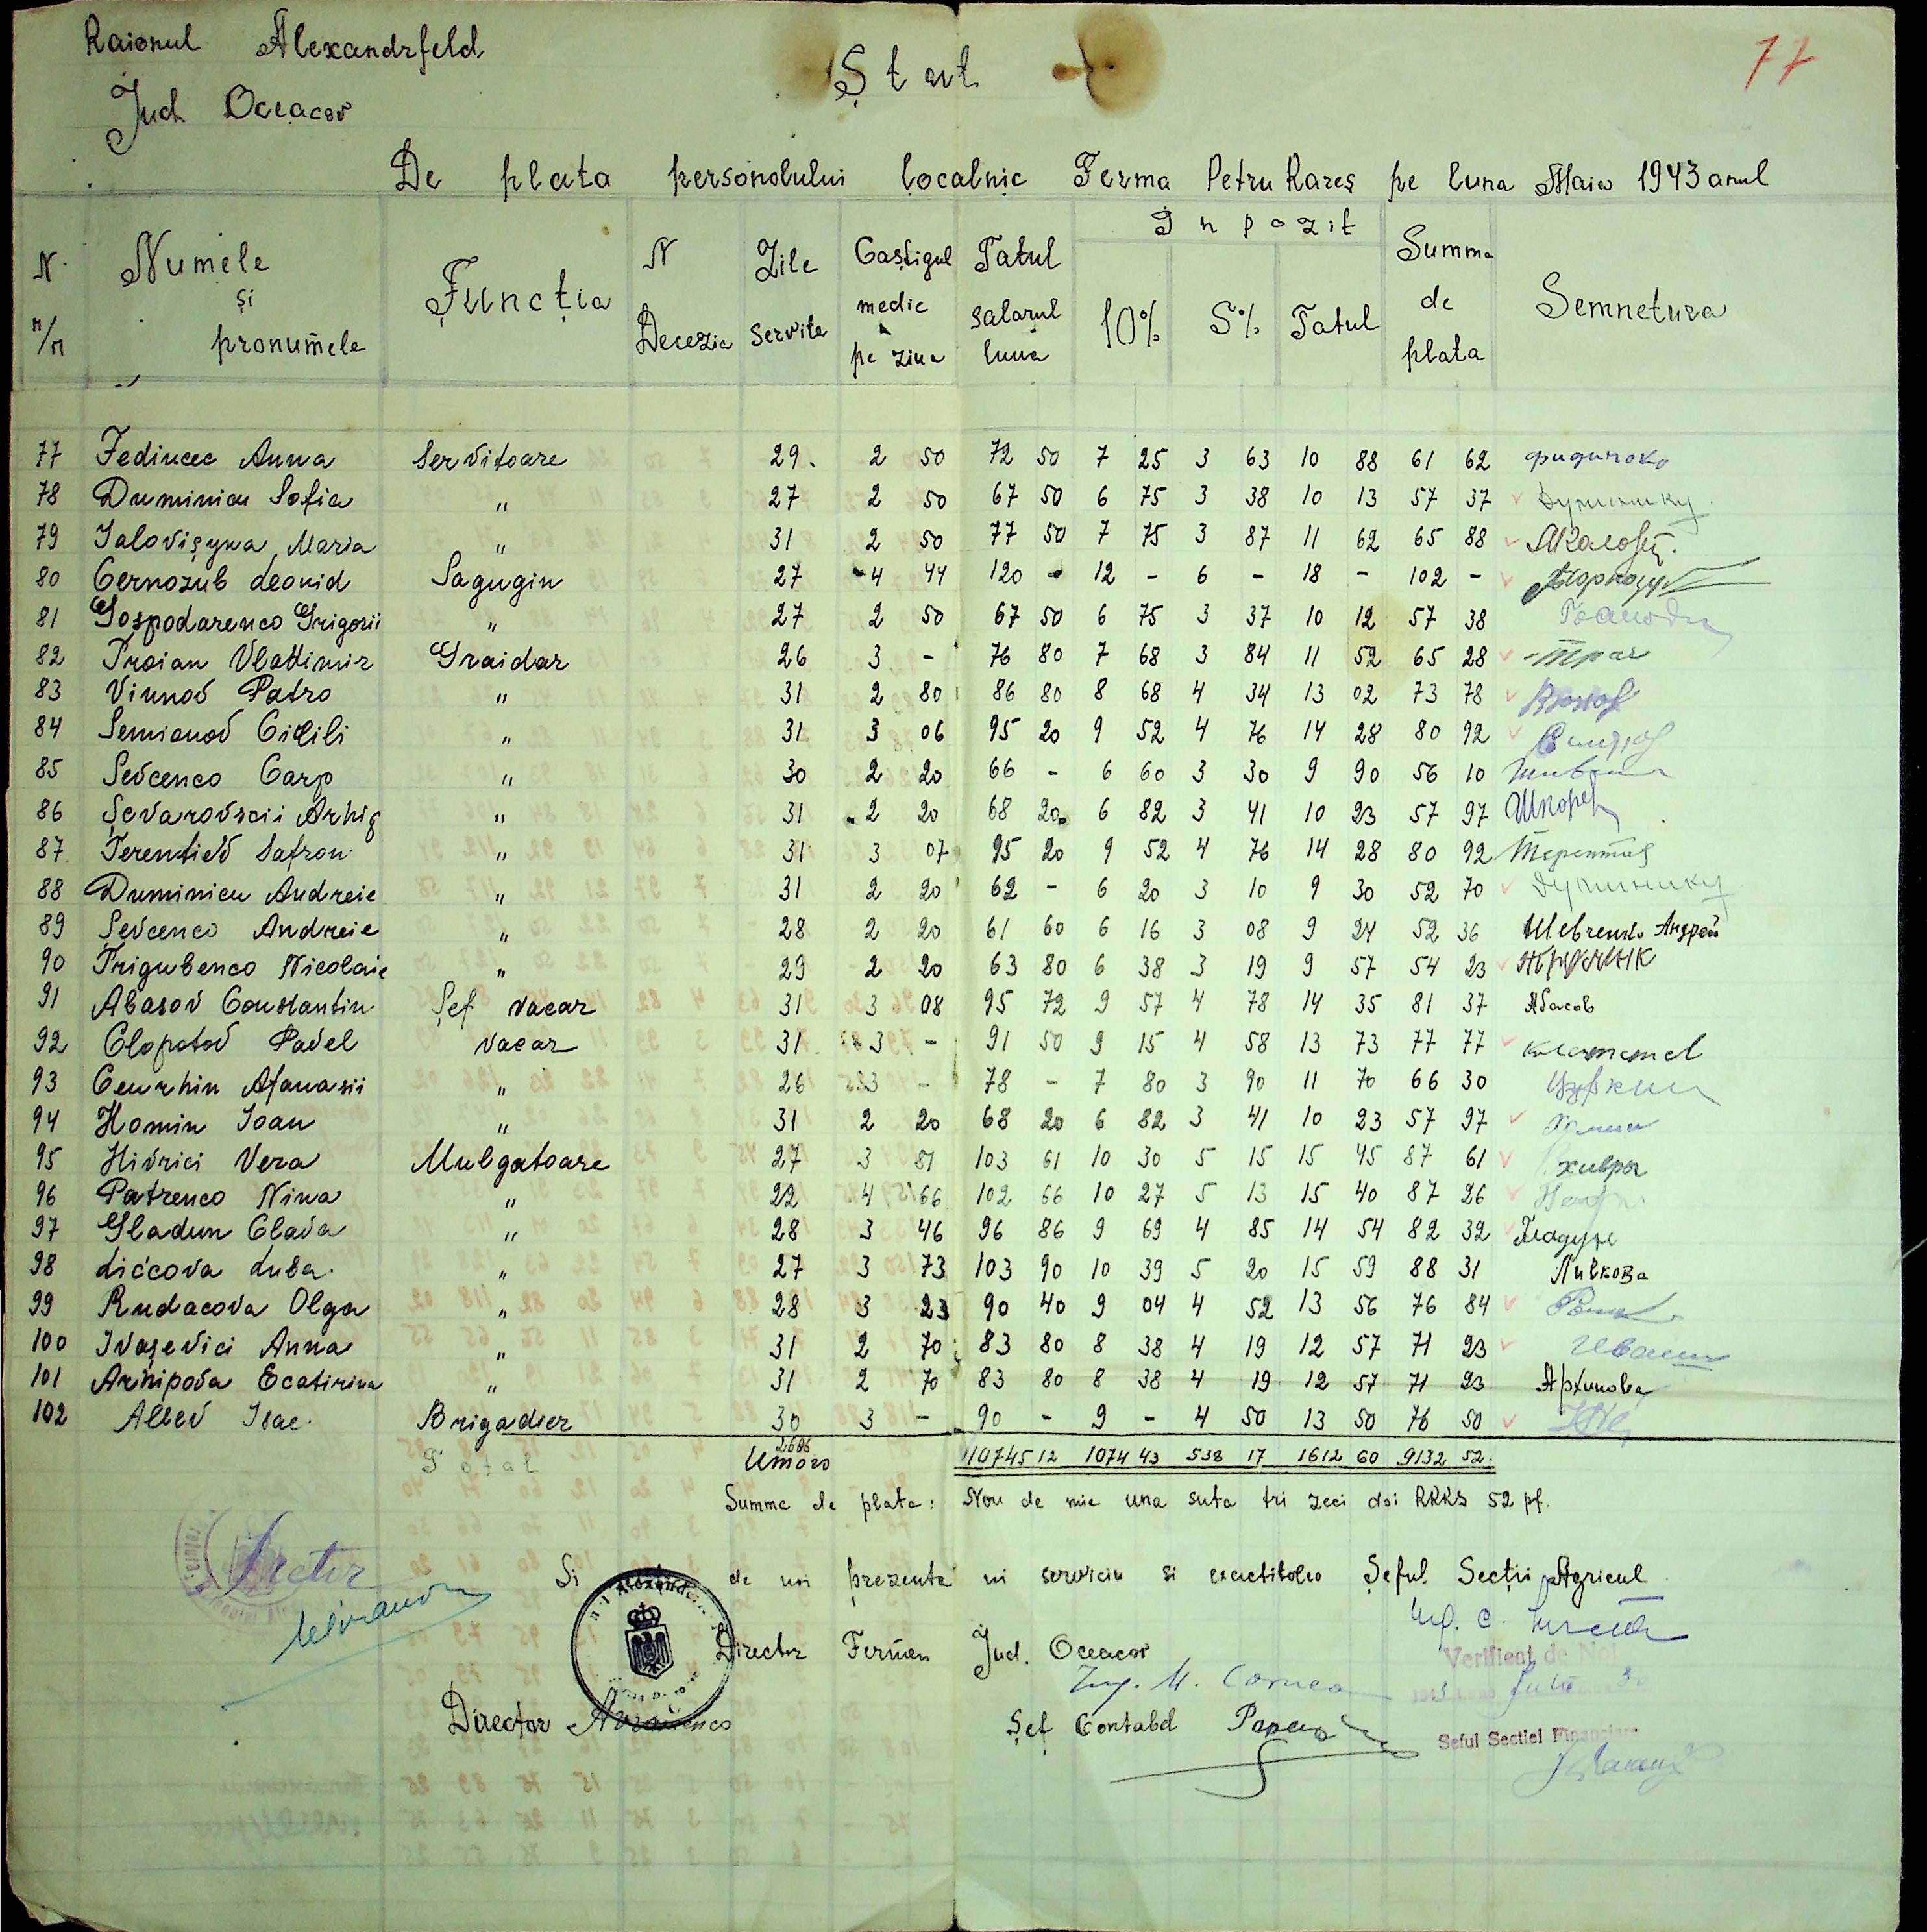 Raionul Alexandrfeld
Jud Oceacov
Ștat
77
De plata personolului localnic Ferma Petru Rareș pe luna Maia 1943 anul
N. n/n Numele și pronumele Funcția N Decezie Zile servite Gaștigul medic pe ziua Tatul salarul luna Inpozit 10% 5% Tatul Summa de plata Semnetura
77 Fedincec Anna Servitoare 29. 2 50 72 50 7 25 3 63 10 88 61 62
78 Duminicu Sofia " 27 2 50 67 50 6 75 3 38 10 13 57 37 Думинику
79 Ialovișyna Maria " 31 2 50 77 50 7 75 3 87 11 62 65 88
80 Cernozub Leonid Sagugin 27 4 44 120 - 12 - 6 - 18 - 102 -
81 Gospodarenco Grigorii " 27 2 50 67 50 6 75 3 37 10 12 57 38
82 Troian Vladimir Graidar 26 3 - 76 80 7 68 3 84 11 52 65 28
83 Vinnov Patro " 31 2 80 86 80 8 68 4 34 13 02 73 78
84 Semionov Cirili " 31 3 06 95 20 9 52 4 76 14 28 80 92
85 Sevcenco Carp " 30 2 20 66 - 6 60 3 30 9 90 56 10
86 Șevarovscii Arhig " 31 2 20 68 20 6 82 3 41 10 23 57 97
87 Terentiev Safron " 31 3 07 95 20 9 52 4 76 14 28 80 92
88 Duminicu Andreie " 31 2 20 62 - 6 20 3 10 9 30 52 70 Думинику
89 Șevcenco Andreie " 28 2 20 61 60 6 16 3 08 9 24 52 36 Шевченко Андрей
90 Trigubenco Nicolaie " 29 2 20 63 80 6 38 3 19 9 57 54 23
91 Abasov Constantin Șef vacar 31 3 08 95 72 9 57 4 78 14 35 81 37 Абасов
92 Clopotov Pavel vacar 31 3 - 91 50 9 15 4 58 13 73 77 77
93 Ceurhin Afanasii " 26 3 - 78 - 7 80 3 90 11 70 66 30
94 Homin Ioan " 31 2 20 68 20 6 82 3 41 10 23 57 97
95 Hivrici Vera Mulgatoare 27 3 81 103 61 10 30 5 15 15 45 87 61
96 Patrenco Nina " 22 4 66 102 66 10 27 5 13 15 40 87 26
97 Gladun Clava " 28 3 46 96 86 9 69 4 85 14 54 82 32
98 Licicova Luba. " 27 3 73 103 90 10 39 5 20 15 59 88 31
99 Rudacova Olga " 28 3 23 90 40 9 04 4 52 13 56 76 84
100 Ivașevici Anna " 31 2 70 83 80 8 38 4 19 12 57 71 23
101 Arhipova Ecatirina " 31 2 70 83 80 8 38 4 19 12 57 71 23 Архипова
102 Allev Isac. Brigadier 30 3 - 90 - 9 - 4 50 13 50 76 50
Total Итого 10745 12 1074 43 538 17 1612 60 9132 52.
Summa de plata: Nou de mie una suta tri zeci doi RKKS 52 pf.
Și de noi prezenta in serviciu si exactitolea Șeful Secții Agricul
Director Fermei Jud. Oceacov
Ing. M. Cornea
Verificat de Noi
Director
Șef Contabel
Seful Sectiei Financiare